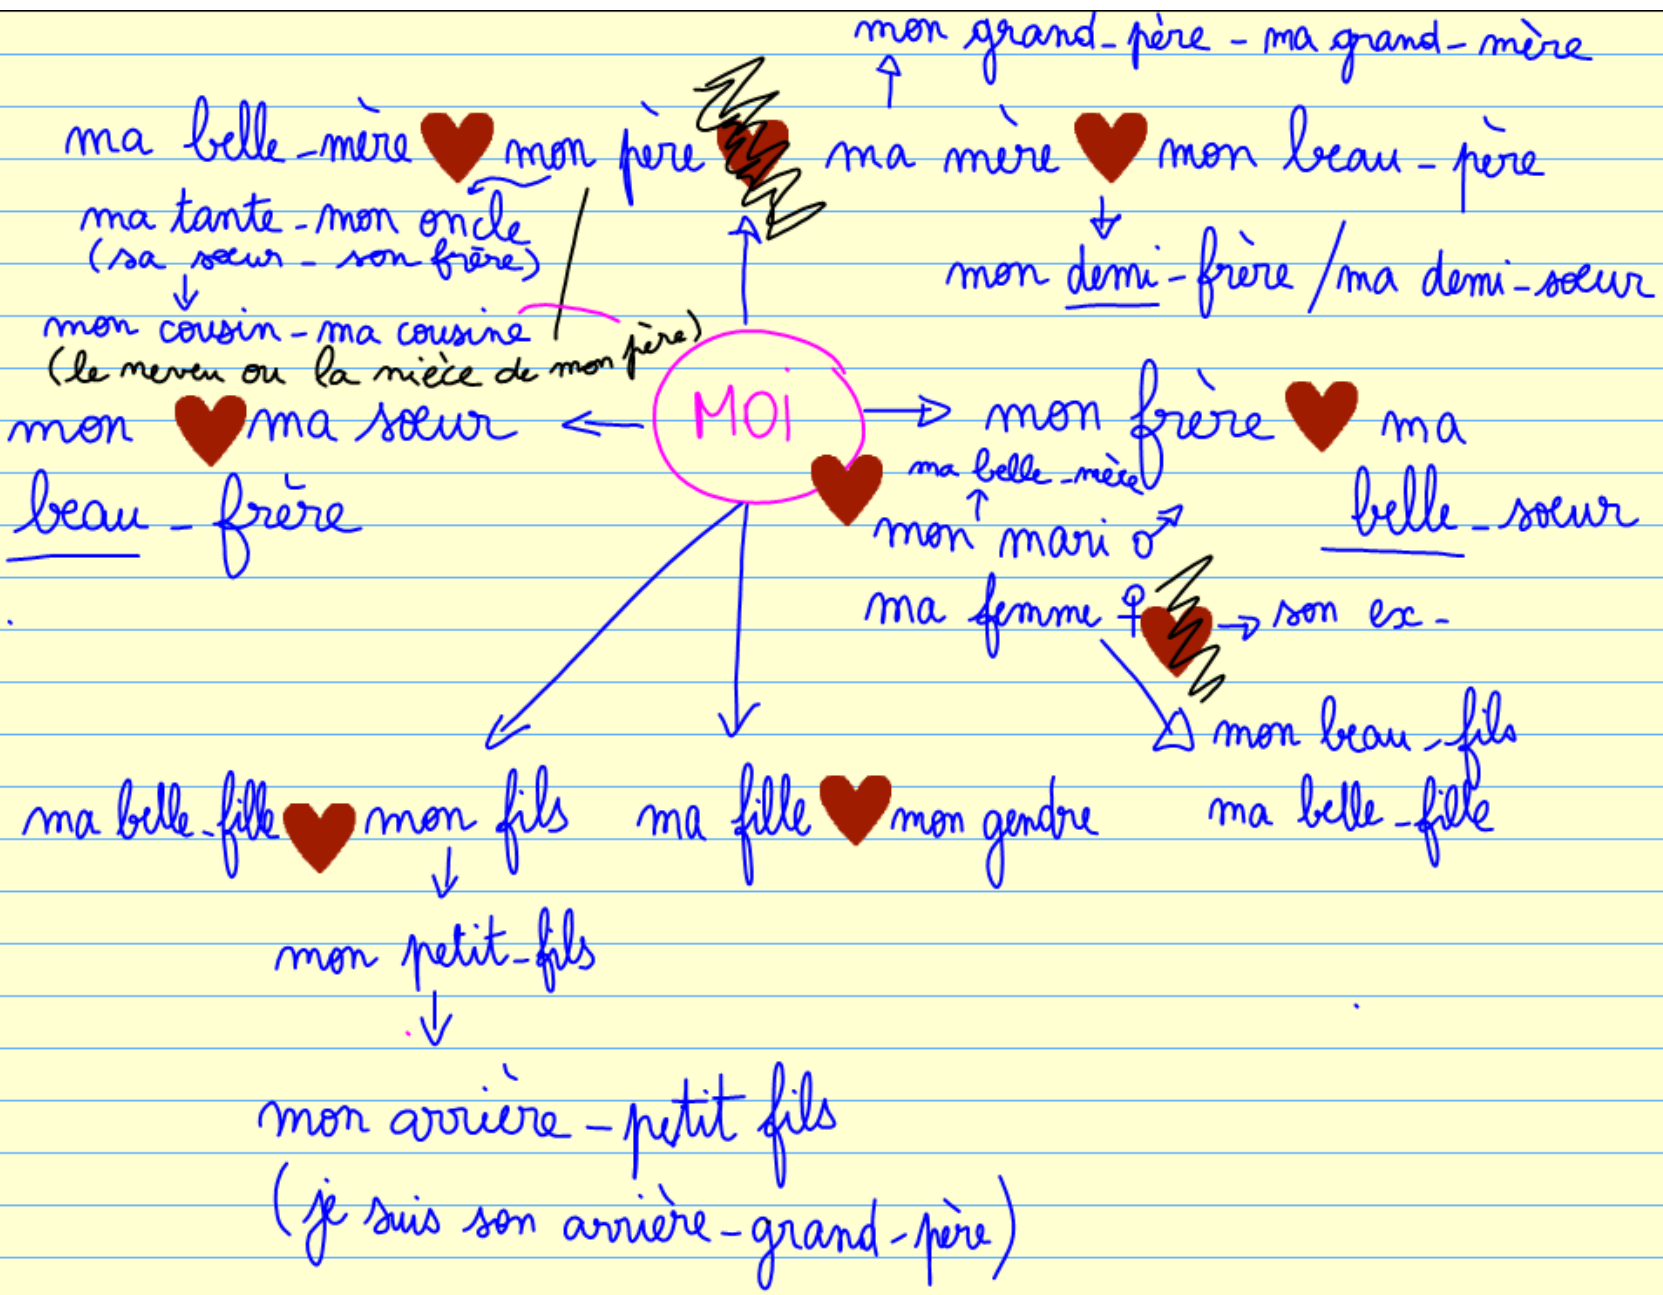 mon grand-père - ma grand-mère
ma belle-mère mon père ma mère mon beau-père
ma tante - mon oncle
(sa sœur - son frère)
mon demi-frère / ma demi-sœur
mon cousin - ma cousine
(le neveu ou la nièce de mon père)
mon ma sœur MOI mon frère ma
beau-frère belle-sœur
ma belle-mère
mon mari ♂
ma femme ♀ son ex-
mon beau-fils
ma belle-fille mon fils ma fille mon gendre ma belle-fille
mon petit-fils
mon arrière-petit fils
(je suis son arrière-grand-père)